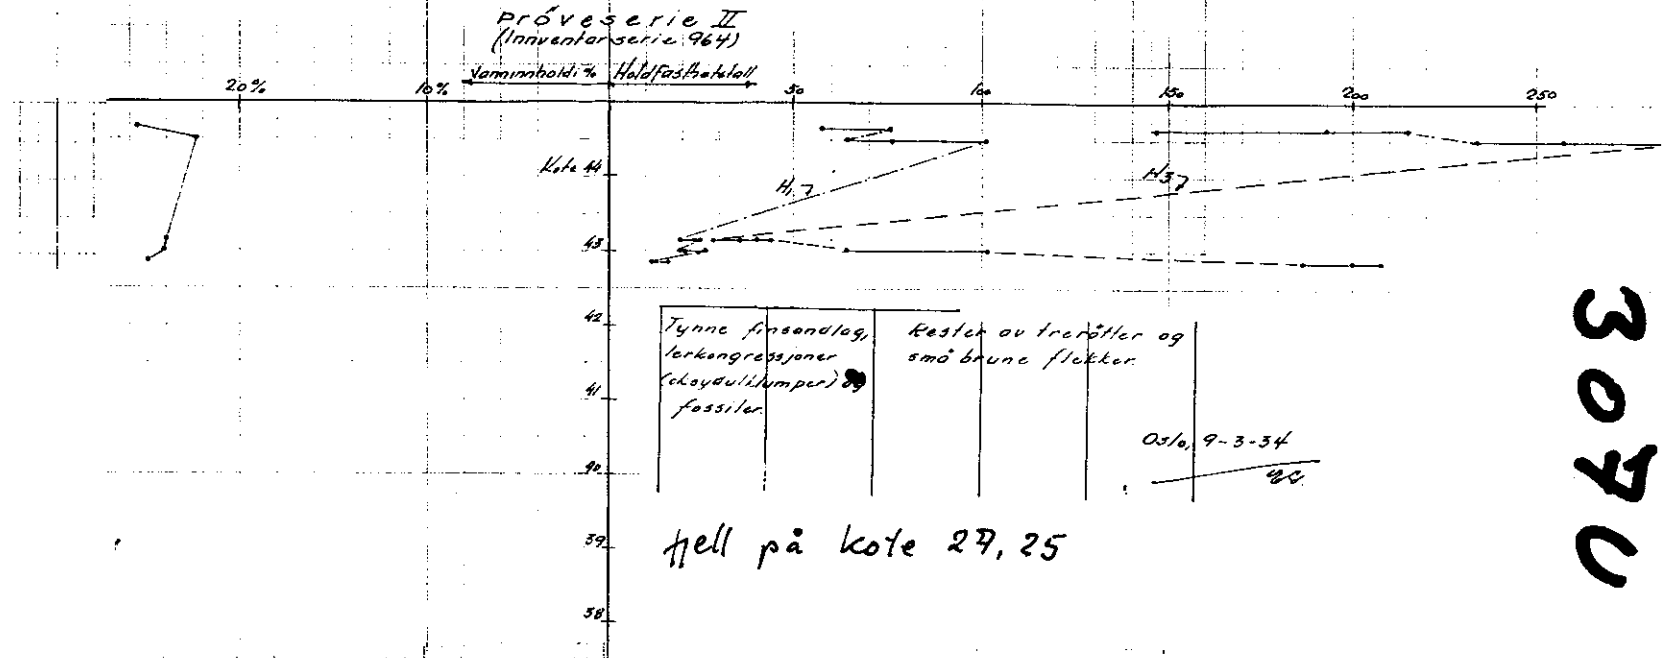 Prøveserie II
(Innventarserie 964)
Vanninnhold i % Holdfasthetstall
20% 10% 50 100 150 200 250
Kote 44
H₁
H₃
43
42
Tynne finsandlag,
lerkongressjoner
(oksydulklumper) og
fossiler.
Rester av trerøtter og
små brune flekker.
41
Oslo, 9-3-34
40
39
fjell på kote 27,25
38
307C